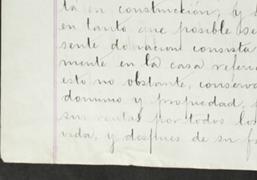 ta en construcción, y
en tanto que posible
sente donación consista
mente en la casa referi
esto no obstante, conserva
dominio y propiedad,
sus rentas por todos los
vida, y despues de su